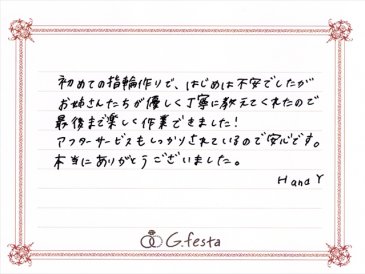 初めての指輪作りで、はじめは不安でしたが
お姉さんたちが優しく丁寧に教えてくれたので
最後まで楽しく作業できました!
アフターサービスもしっかりされているので安心です。
本当にありがとうございました。
H and Y
G.festa